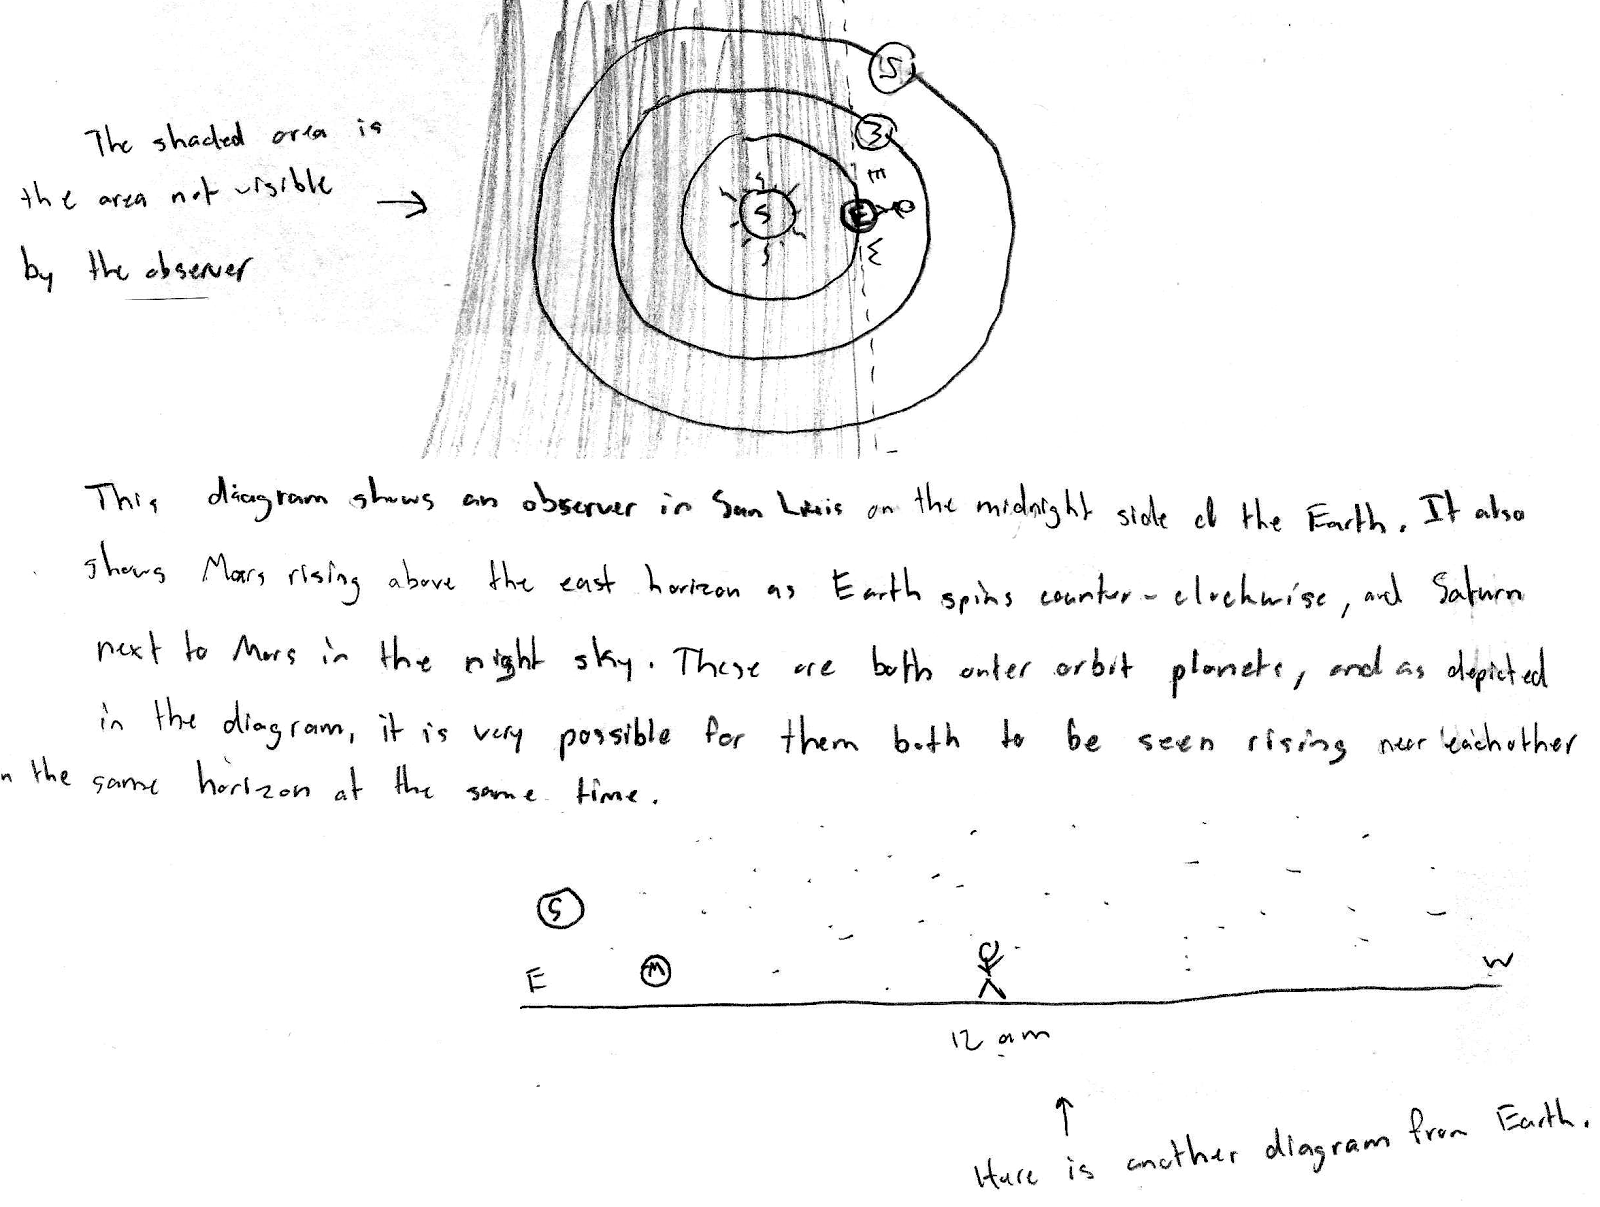 S
The shaded area is
M
the area not visible
E
S
E
W
by the observer
This diagram shows an observer in San Luis on the midnight side of the Earth. It also
shows Mars rising above the east horizon as Earth spins counter-clockwise, and Saturn
next to Mars in the night sky. These are both outer orbit planets, and as depicted
in the diagram, it is very possible for them both to be seen rising near eachother
n the same horizon at the same time.
S
E
M
W
12 am
Here is another diagram from Earth.